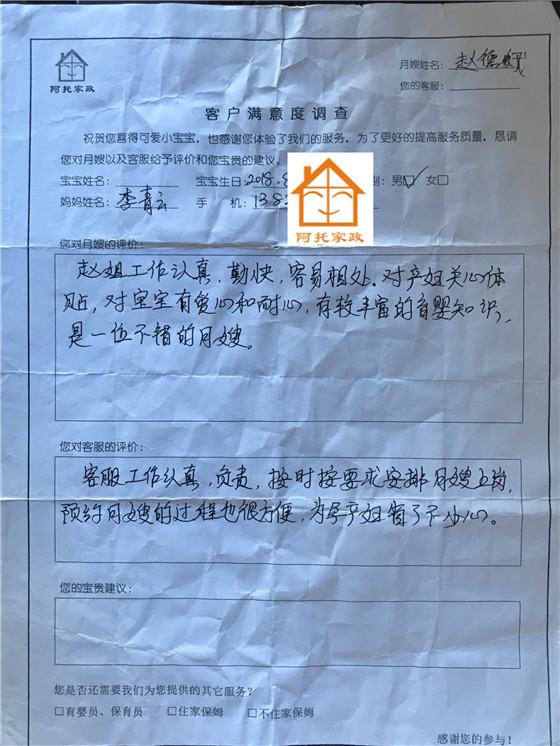 阿托家政
月嫂姓名：赵德
您的客服：
客户满意度调查
祝贺您喜得可爱小宝宝，也感谢您体验了我们的服务，为了更好的提高服务质量，恳请
您对月嫂以及客服给予评价和您宝贵的建议。
宝宝姓名： 宝宝生日：2018.8 别：男☑ 女☐
妈妈姓名：李青云 手 机：1382
阿托家政
您对月嫂的评价：
赵姐工作认真，勤快，容易相处。对产姐关心体
贴，对宝宝有爱心和耐心，有较丰富的育婴知识，
是一位不错的月嫂。
您对客服的评价：
客服工作认真，负责，按时按要求安排月嫂上岗，
预约月嫂的过程也很方便，为孕产姐省了不少心。
您的宝贵建议：
您是否还需要我们为您提供的其它服务？
☐育婴员、保育员 ☐住家保姆 ☐不住家保姆
感谢您的参与！